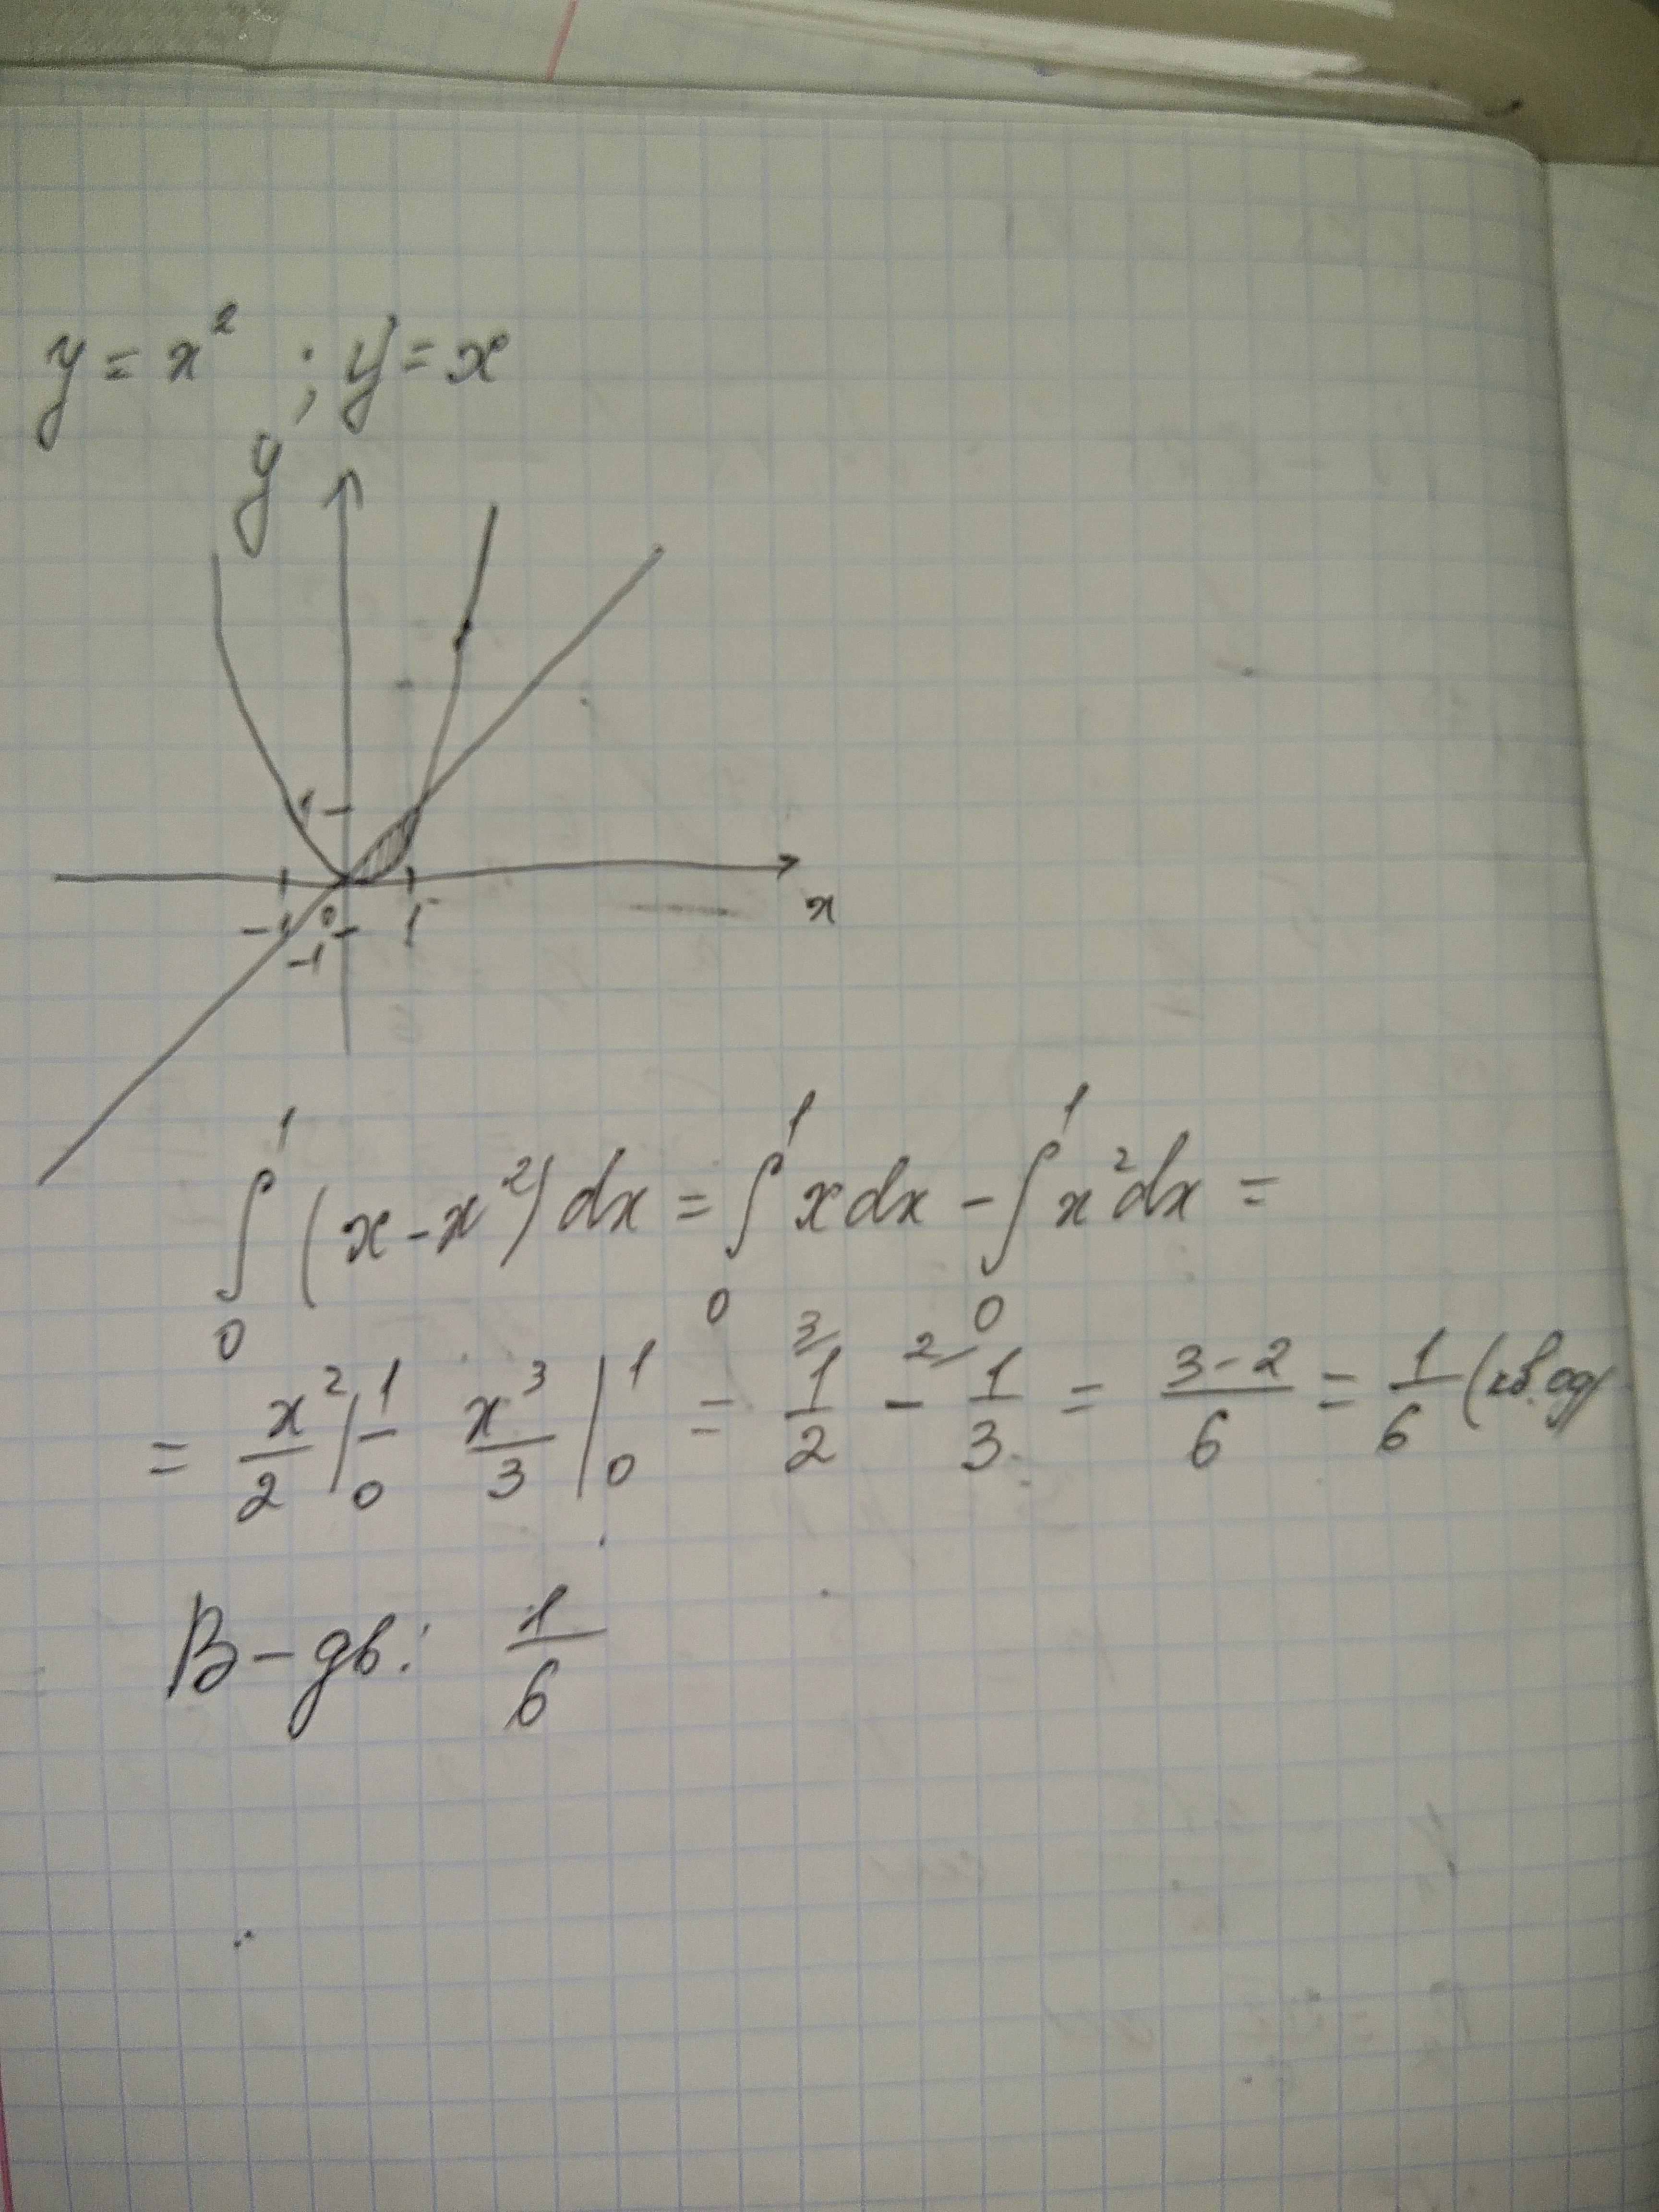 y = x² ; y = x
y
1
-1 0 1 x
-1
∫₀¹ (x - x²) dx = ∫₀¹ x dx - ∫₀¹ x² dx =
= x²/2 |₀¹ - x³/3 |₀¹ = ³⁾1/2 - ²⁾1/3 = (3-2)/6 = 1/6 (кв.од)
В-дь: 1/6